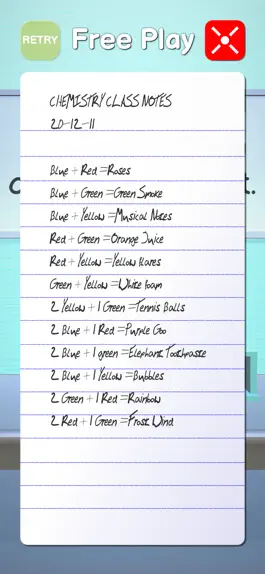 RETRY Free Play
CHEMISTRY CLASS NOTES
20-12-11
Blue + Red = Roses
Blue + Green = Green Smoke
Blue + Yellow = Musical Notes
Red + Green = Orange Juice
Red + Yellow = Yellow
Green + Yellow = White Foam
2 Yellow + 1 Green = Tennis Balls
2 Blue + 1 Red = Purple Goo
2 Blue + 1 green = Elephant Toothpaste
2 Blue + 1 Yellow = Bubbles
2 Green + 1 Red = Rainbow
2 Red + 1 Green = Frost Wind